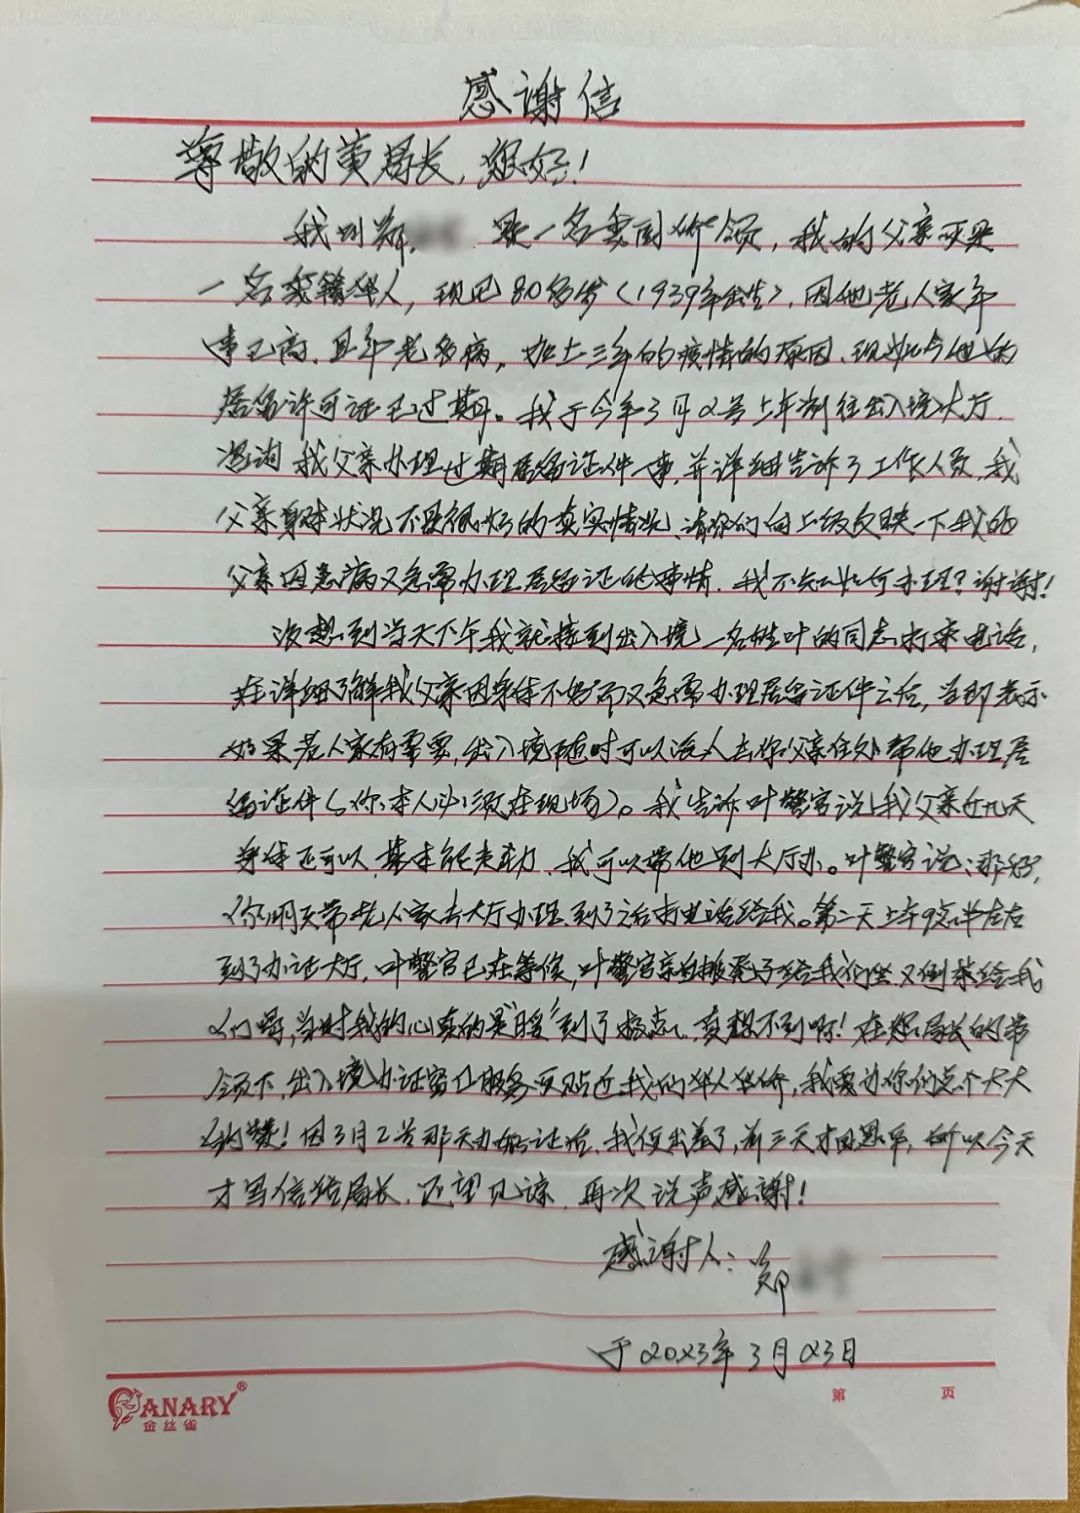 感谢信
尊敬的黄局长,您好!
我叫郑 是一名美国侨领,我的父亲更是
一名美籍华人,现已80多岁(1939年出生),因他老人家年
事已高,且年老多病,加上三年的疫情的原因,现如今他的
居留许可证已过期。我于今年3月2号上午前往出入境大厅
咨询我父亲办理过期居留证件一事,并详细告诉了工作人员,我
父亲身体状况不是很好的真实情况,请你们向上级反映一下我的
父亲因患病又急需办理居留证的事情,我不知如何办理?谢谢!
没想到当天下午我就接到出入境一名姓叶的同志打来电话,
在详细了解我父亲因身体不好而又急需办理居留证件之后,当即表示
如果老人家有需要,出入境随时可以派人去你父亲住处帮他办理居
留证件(你本人必须在现场)。我告诉叶警官说,我父亲近几天
身体还可以,基本能走动,我可以带他到大厅办。叶警官说:那好,
你明天带老人家去大厅办理,到了后打电话给我。第二天上午9点半左右
到了办证大厅,叶警官已在等候,叶警官亲自搬凳子给我们坐,又倒茶给我
们喝,当时我的心真的是“暖”到了极点,真想不到啊!在您局长的带
领下,出入境办证窗口服务更贴近我们华人华侨,我要为你们点个大大
的赞!因3月2号那天办好证后,我便出差了,前三天才回恩平,所以今天
才写信给局长,还望见谅,再次说声感谢!
感谢人:郑
于2023年3月23日
CANARY®
金丝雀
第 页